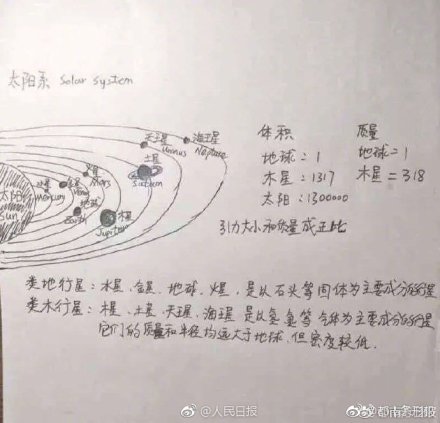 太阳系 Solar System
天王星
Uranus
海王星
Neptune
土星
火星
Mars
金星
Venus
水星
Mercury
太阳
Sun
地球
Earth
木星
Jupiter
体积 质量
地球：1 地球=1
木星：1317 木星=318
太阳：1300000
引力大小和质量成正比
类地行星：水星、金星、地球、火星，是以石头等固体为主要成分的行星
类木行星：木星、土星、天王星、海王星 是以氢氦等气体为主要成分的行星
它们的质量和半径均远大于地球，但密度较低.
@人民日报